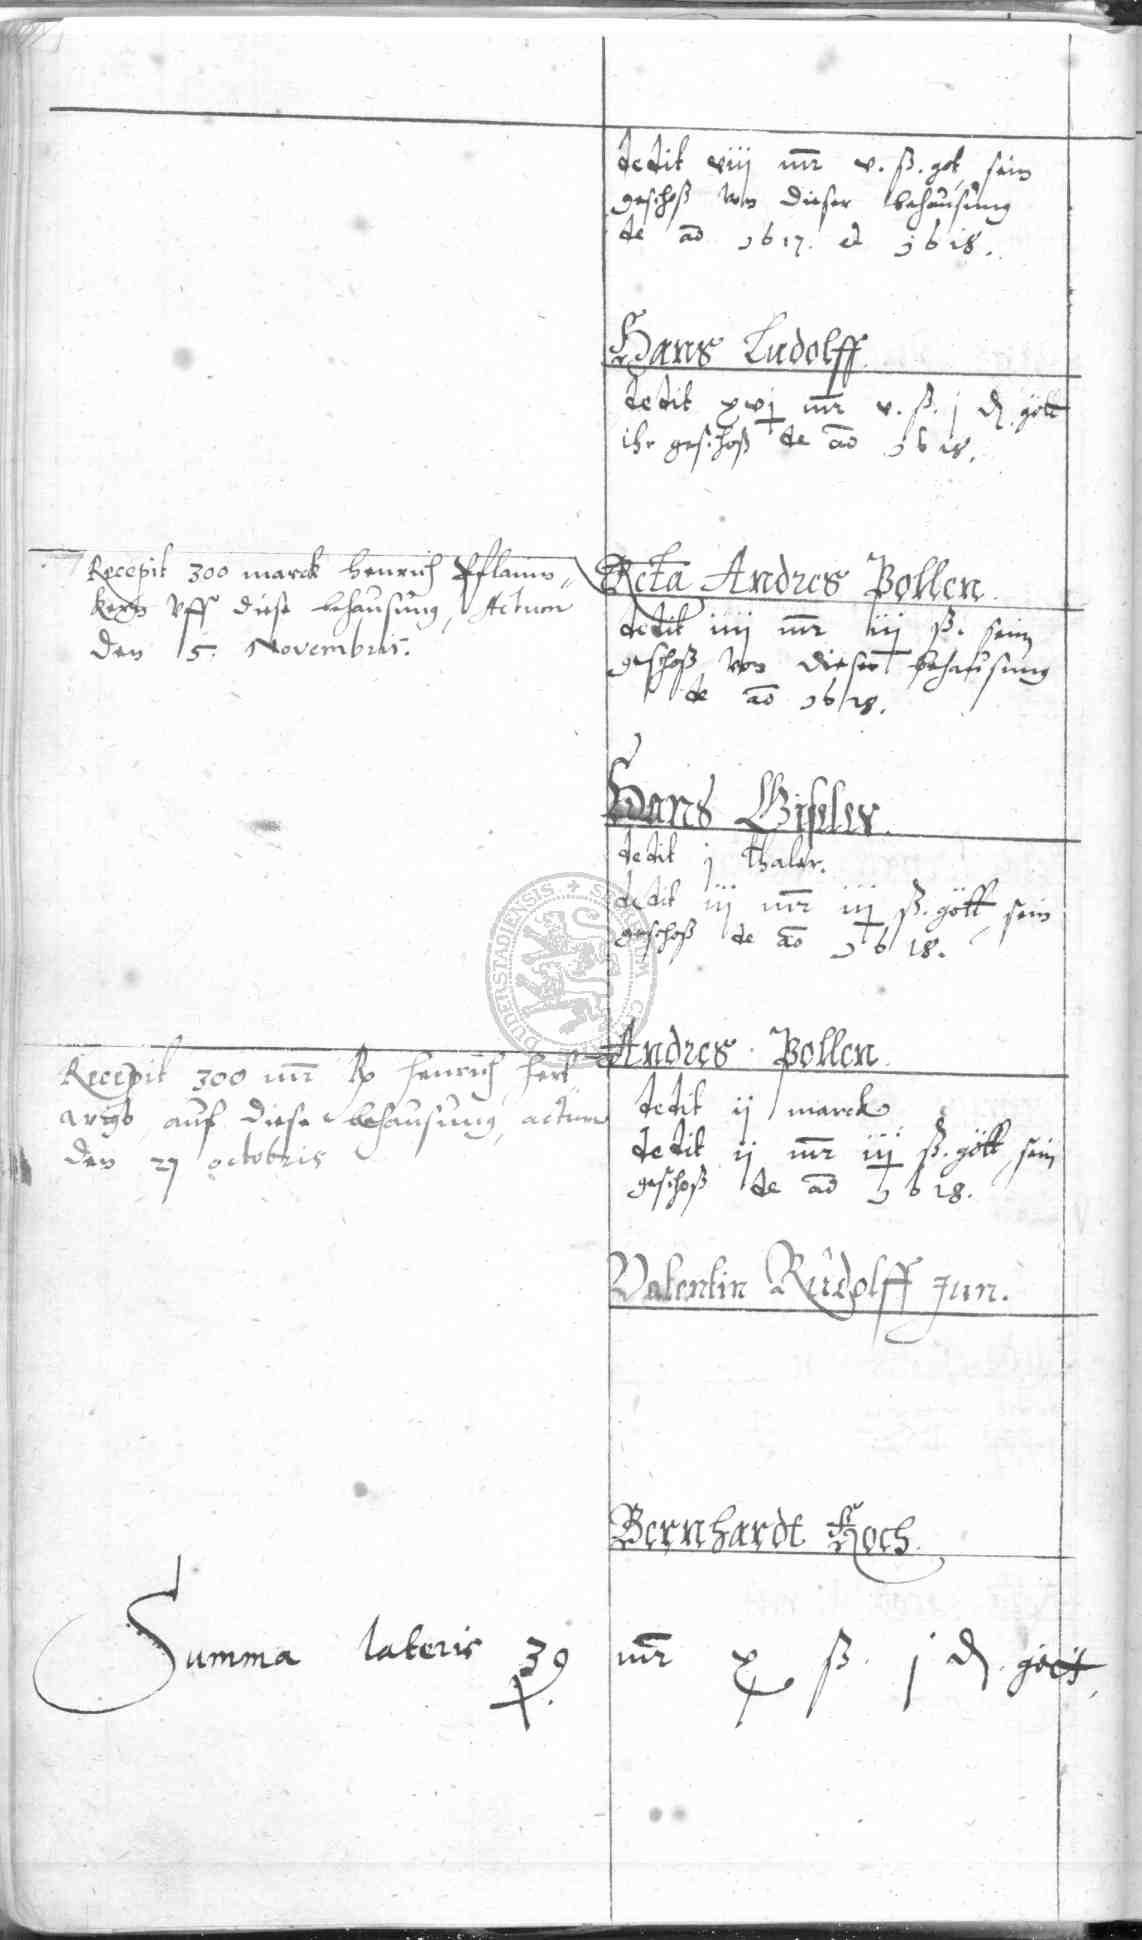 dedit viij mr v. ß. got. sein
geschoß von dieser behausung
de ao 1617. et 1618.
Hans Ludolff.
dedit xvj mr v. ß. j d. gött
ihr geschoß de ao 1618.
Recepit 300 marck Henrich Pflaum-
kern uff diese behausung, Actum
den 5. Novembris.
Relicta Andres Pollen.
dedit iiij mr iij ß. sein
geschoß von dieser behausung
de ao 1618.
Hans Giseler.
dedit j thaler.
dedit iij mr iij ß. gött sein
geschoß de ao 1618.
Andres Pollen.
Recepit 300 mr Henrich Hert-
wigs auf diese behausung, actum
den 27 octobris
dedit ij marck
dedit ij mr iij ß. gött sein
geschoß de ao 1618.
Valentin Rudolff Jun.
Bernhardt Koch.
Summa lateris 39 mr x ß. j d. gött.
DUDERSTADIENSIS + SECRETUM